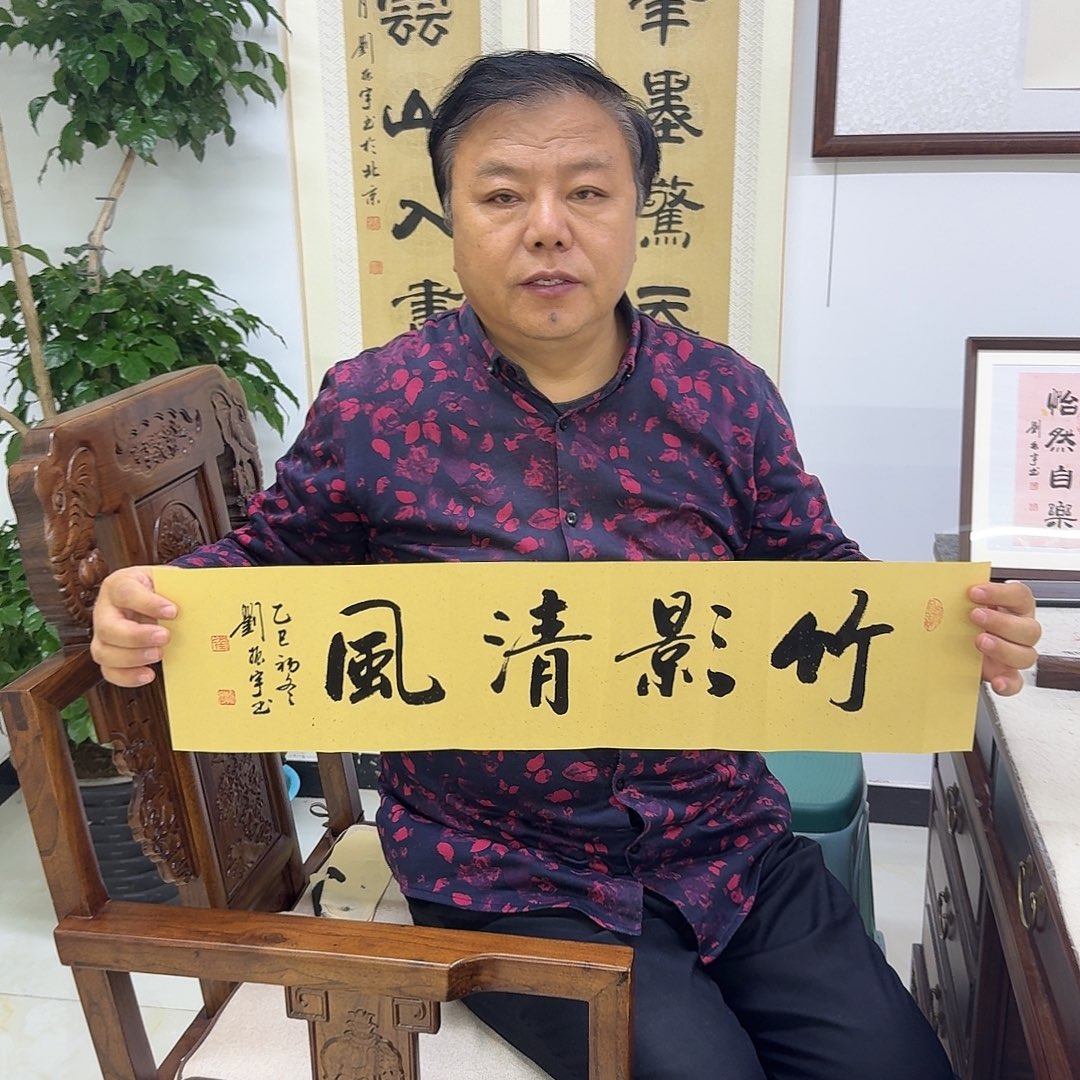 竹影清風
乙巳初冬
劉振宇書
墨驚天
雲山入畫
劉振宇書於北京
怡然自樂
劉振宇書